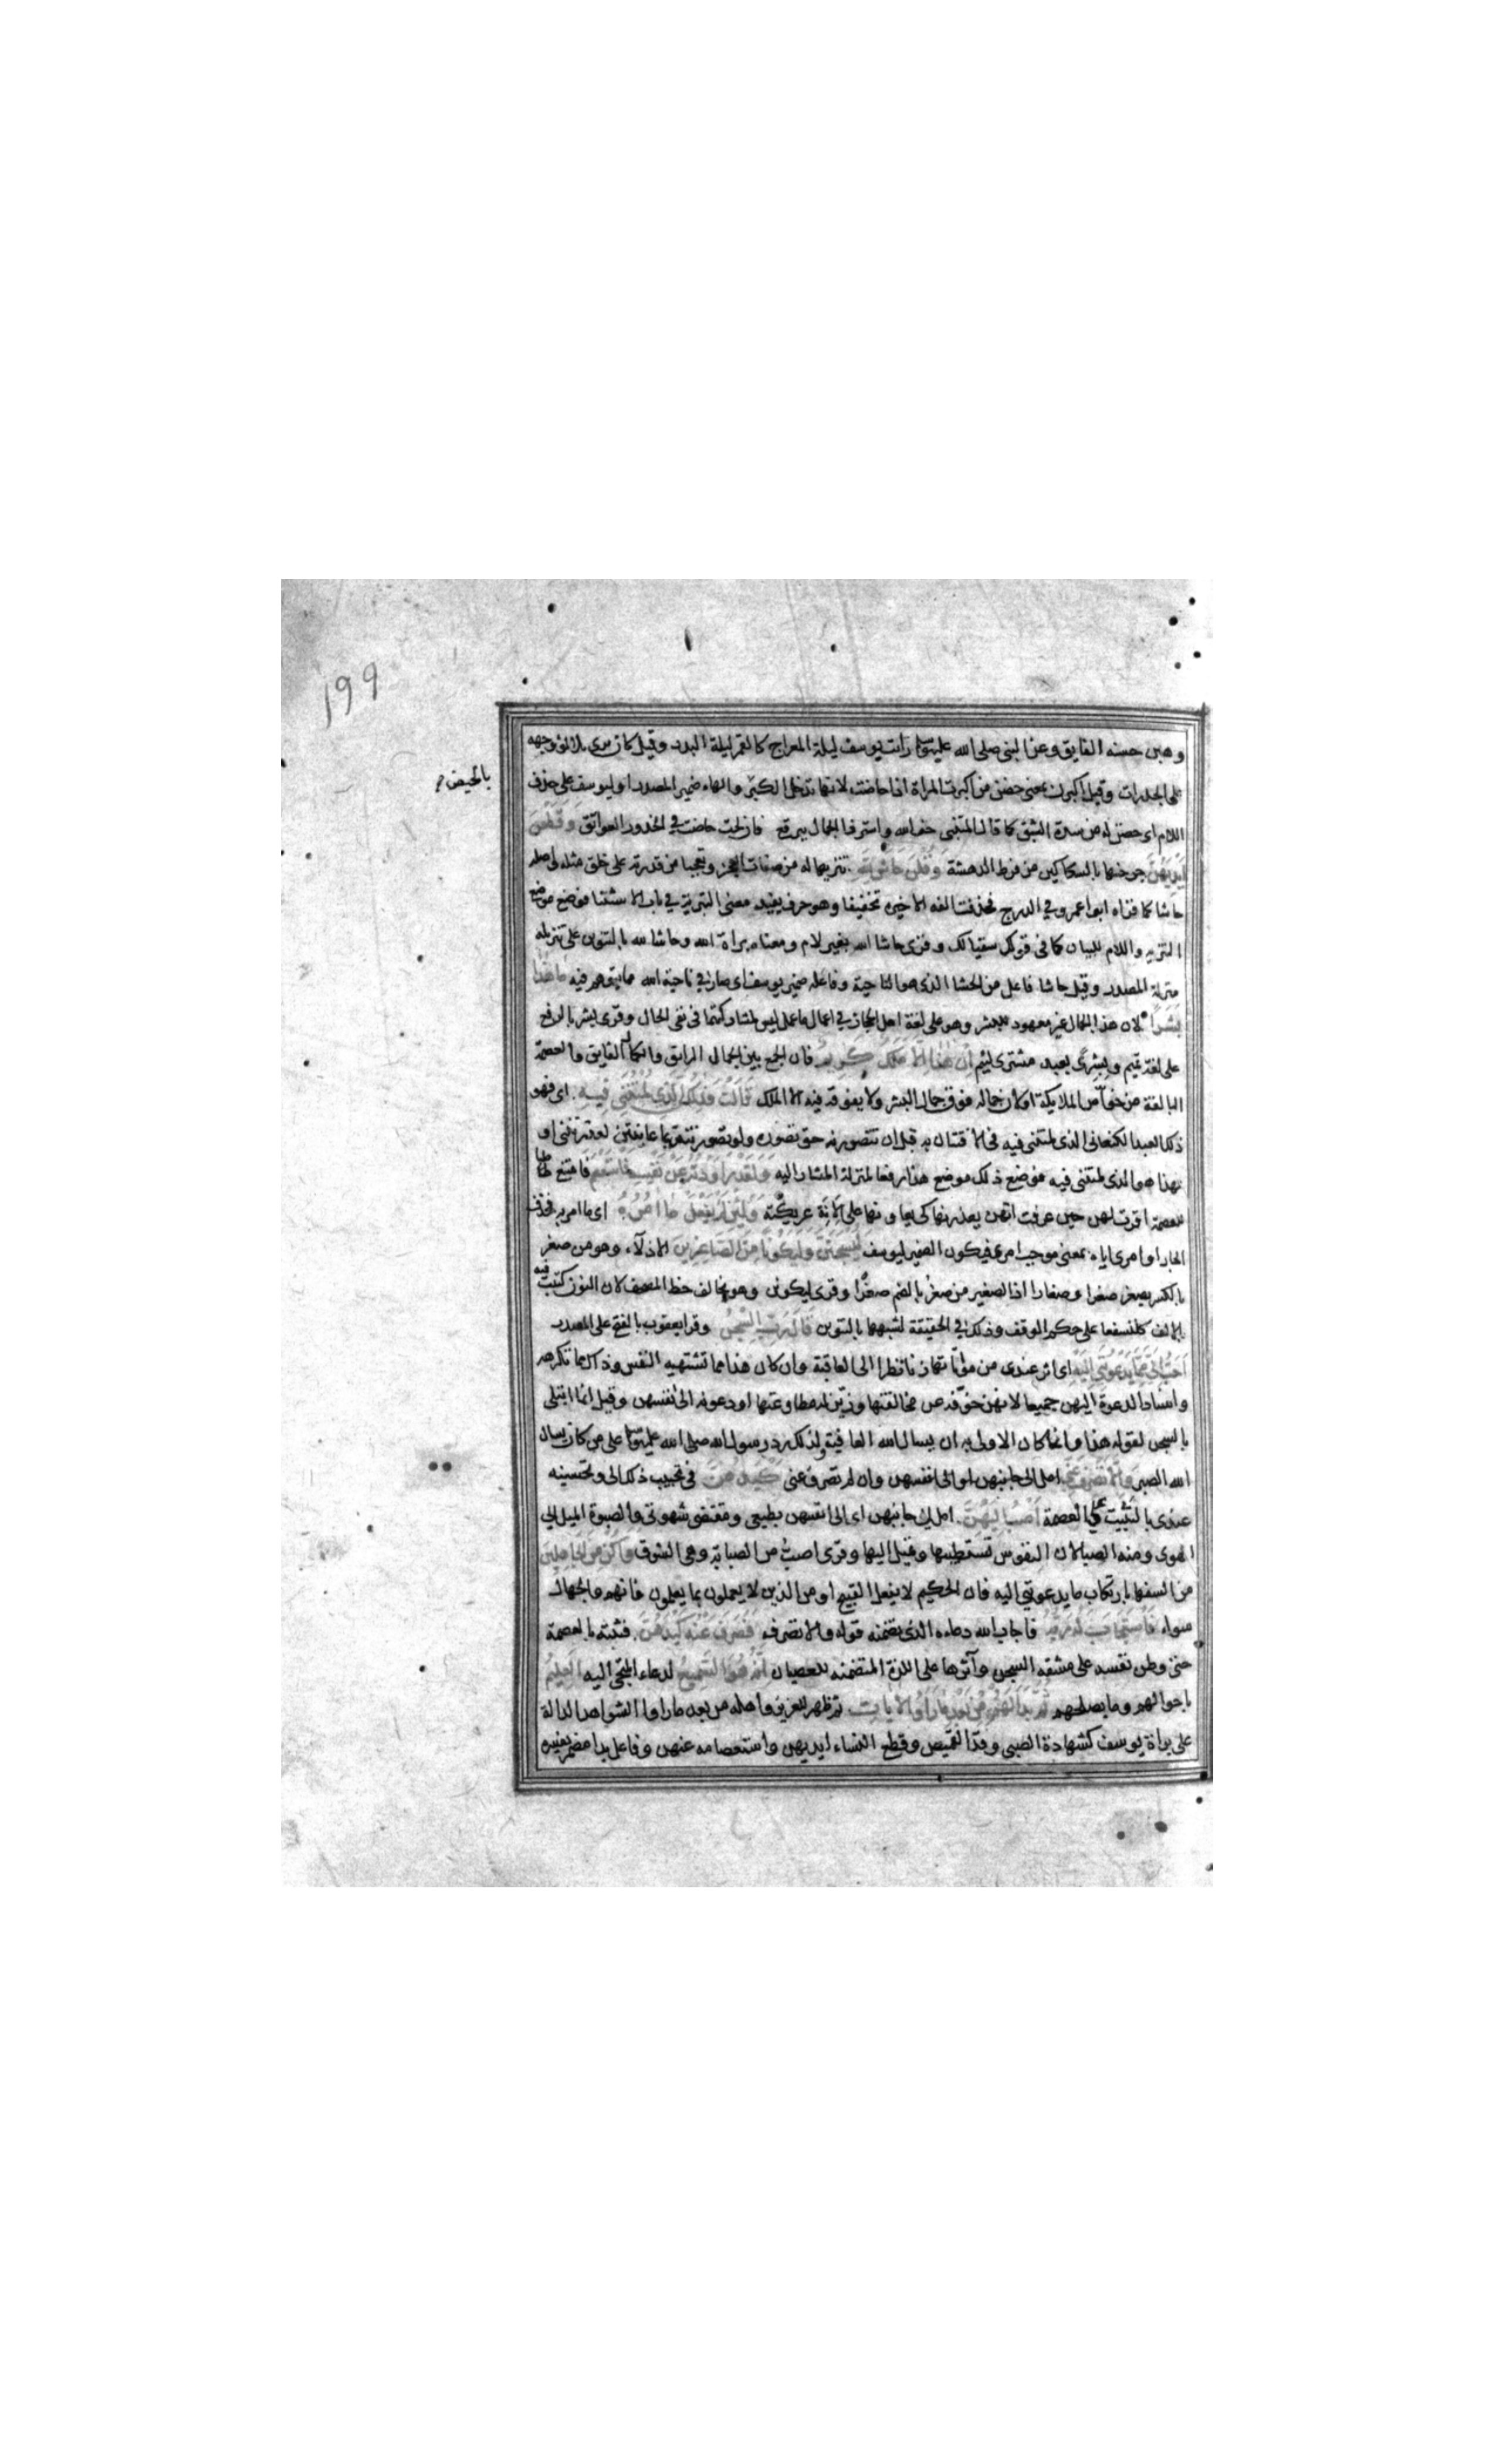 ١٩٩
وهبن حسنه الفايق وعن النبي صلى الله عليه وسلم رايت يوسف ليلة المعراج كالقمر ليلة البدر وقيل كان يرى تلالؤ وجهه
على الجدرات وقيل اكبرن بمعنى حضن من اكبرت المراة اذا حاضت لانها تدخل الكبر والهاء ضمير المصدر او ليوسف على حذف
بالحيض
اللام اى حضن له من شدة الشبق كما قال المتنبى خف الله واستر ذا الجمال ببرقع فان لحت حاضت في الخدور العواتق وقطعن
ايديهن جرحنها بالسكاكين من فرط الدهشة وقلن حاش لله تنزيها له من صفات العجز وتعجبا من قدرته على خلق مثله اصله
حاشا كما قراه ابوا عمرو في الدرج فحذفت الفه الاخيرة تخفيفا وهو حرف يفيد معنى التبرية في باب الاستثنا فوضع موضع
التنزيه واللام للبيان كما في قولك سقيا لك وقرى حاشا الله بغير لام ومعناه براة الله وحاشا لله بالتنوين على تنزيله
منزلة المصدر وقيل حاشا فاعل من الحشا الذى هو الناحية وفاعله ضمير يوسف اى صار في ناحية الله مما يتوهم فيه ما هذا
بشرا لان هذا الجمال غير معهود للبشر وهو على لغة اهل الحجاز في اعمال ما عمل ليس لمشاركتها في نفى الحال وقرى بشر بالرفع
على لغة تميم وبشرى بعبد مشترى لئيم ان هذا الا ملك كريم فان الجمع بين الجمال الرائق والكمال الفايق والعصمة
البالغة من خواص الملايكة او لان جماله فوق جمال البشر ولا يفوقه فيه الا الملك قالت فذلكن الذى لمتننى فيه اى فهو
ذلك العبد الكنعانى الذى لمتننى فيه في الافتتان به قبل ان تتصورنه حق تصوره ولو تصورتنه بما عاينتن لعذرتننى او
بهذا هو الذى لمتننى فيه فوضع ذلك موضع هذا رفعا لمنزلة المشار اليه ولقد راودته عن نفسه فاستعصم فامتنع طلبا
للعصمة اقرت لهن حين عرفت انهن يعذرنها كى يعاونها على الانة عريكته ولئن لم يفعل ما امره اى ما امر به فحذف
الجار او امرى اياه بمعنى موجب امرى فيكون الضمير ليوسف ليسجنن وليكونا من الصاغرين الاذلاء وهو من صغر
بالكسر يصغر صغرا وصغارا اذ الصغير من صغر بالضم صغرا وقرى ليكونن وهو يخالف خط المصحف لان النون كتبت فيه
بالالف كلنسفعا على حكم الوقف وذلك في الحقيقة لشبهها بالتنوين قال رب السجن وقرا يعقوب بالفتح على المصدر
احب الى مما يدعوننى اليه اى اثر عندى من مؤاتاتها زنا نظرا الى العاقبة وان كان هذا مما تشتهيه النفس وذاك مما تكرهه
واسناد الدعوة اليهن جميعا لانهن خوفنه من مخالفتها وزين له مطاوعتها او دعونه الى انفسهن وقيل انما ابتلى
بالسجن لقوله هذا وانما كان الاولى به ان يسال الله العافية ولذلك رد رسول الله صلى الله عليه وسلم على من كان يسال
الله الصبر والا تصرف عنى امل الى جانبهن او الى انفسهن وان لم تصرف عنى كيدهن في تحبيب ذلك الى وتحسينه
عندى بالتثبيت على العصمة اصب اليهن امل الى جانبهن اى الى انفسهن بطبعى ومقتضى شهوتى والصبوة الميل الى
الهوى ومنه الصبا لان النفوس تستطيبها وتميل اليها وقرى اصب من الصبابة وهى الشوق واكن من الجاهلين
من السفها بارتكاب ما يدعوننى اليه فان الحكيم لا يفعل القبيح او من الذين لا يعملون بما يعلمون فانهم والجهال
سواء فاستجاب له ربه فاجاب الله دعاءه الذى تضمنه قوله والا تصرف فصرف عنه كيدهن فثبته بالعصمة
حتى وطن نفسه على مشقه السجن وآثرها على اللذة المتضمنه للعصيان انه هو السميع لدعاء الملتجى اليه العليم
باحوالهم وما يصلحهم ثم بدا لهم من بعد ما راوا الايات ثم ظهر للعزيز واهله من بعد ما راوا الشواهد الدالة
على براة يوسف كشهادة الصبى وقد القميص وقطع النساء ايديهن واستعصامه عنهن وفاعل بدا مضمر يفسره